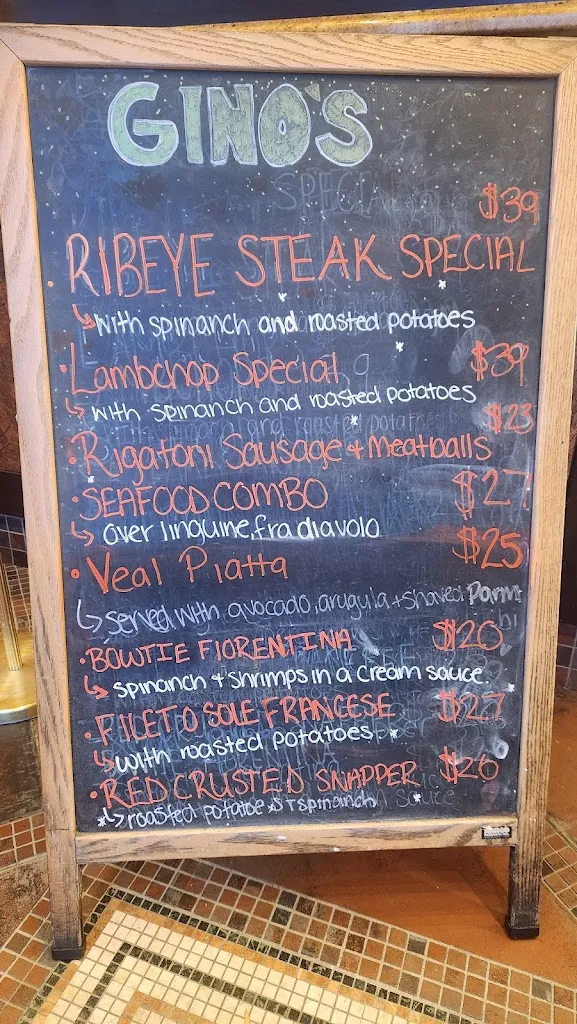 GINO'S
SPECIAL
$39
RIBEYE STEAK SPECIAL
with spinanch and roasted potatoes
Lambchop Special $39
with spinanch and roasted potatoes
$23
Rigatoni Sausage + Meatballs
SEAFOOD COMBO $27
over linguine, fra diavolo
Veal Piatta $25
served with avocado, arugula + shaved Parm
BOWTIE FIORENTINA $20
spinanch + shrimps in a cream sauce.
FILET O SOLE FRANCESE $27
with roasted potatoes
RED CRUSTED SNAPPER $26
roasted potatoes + spinanch